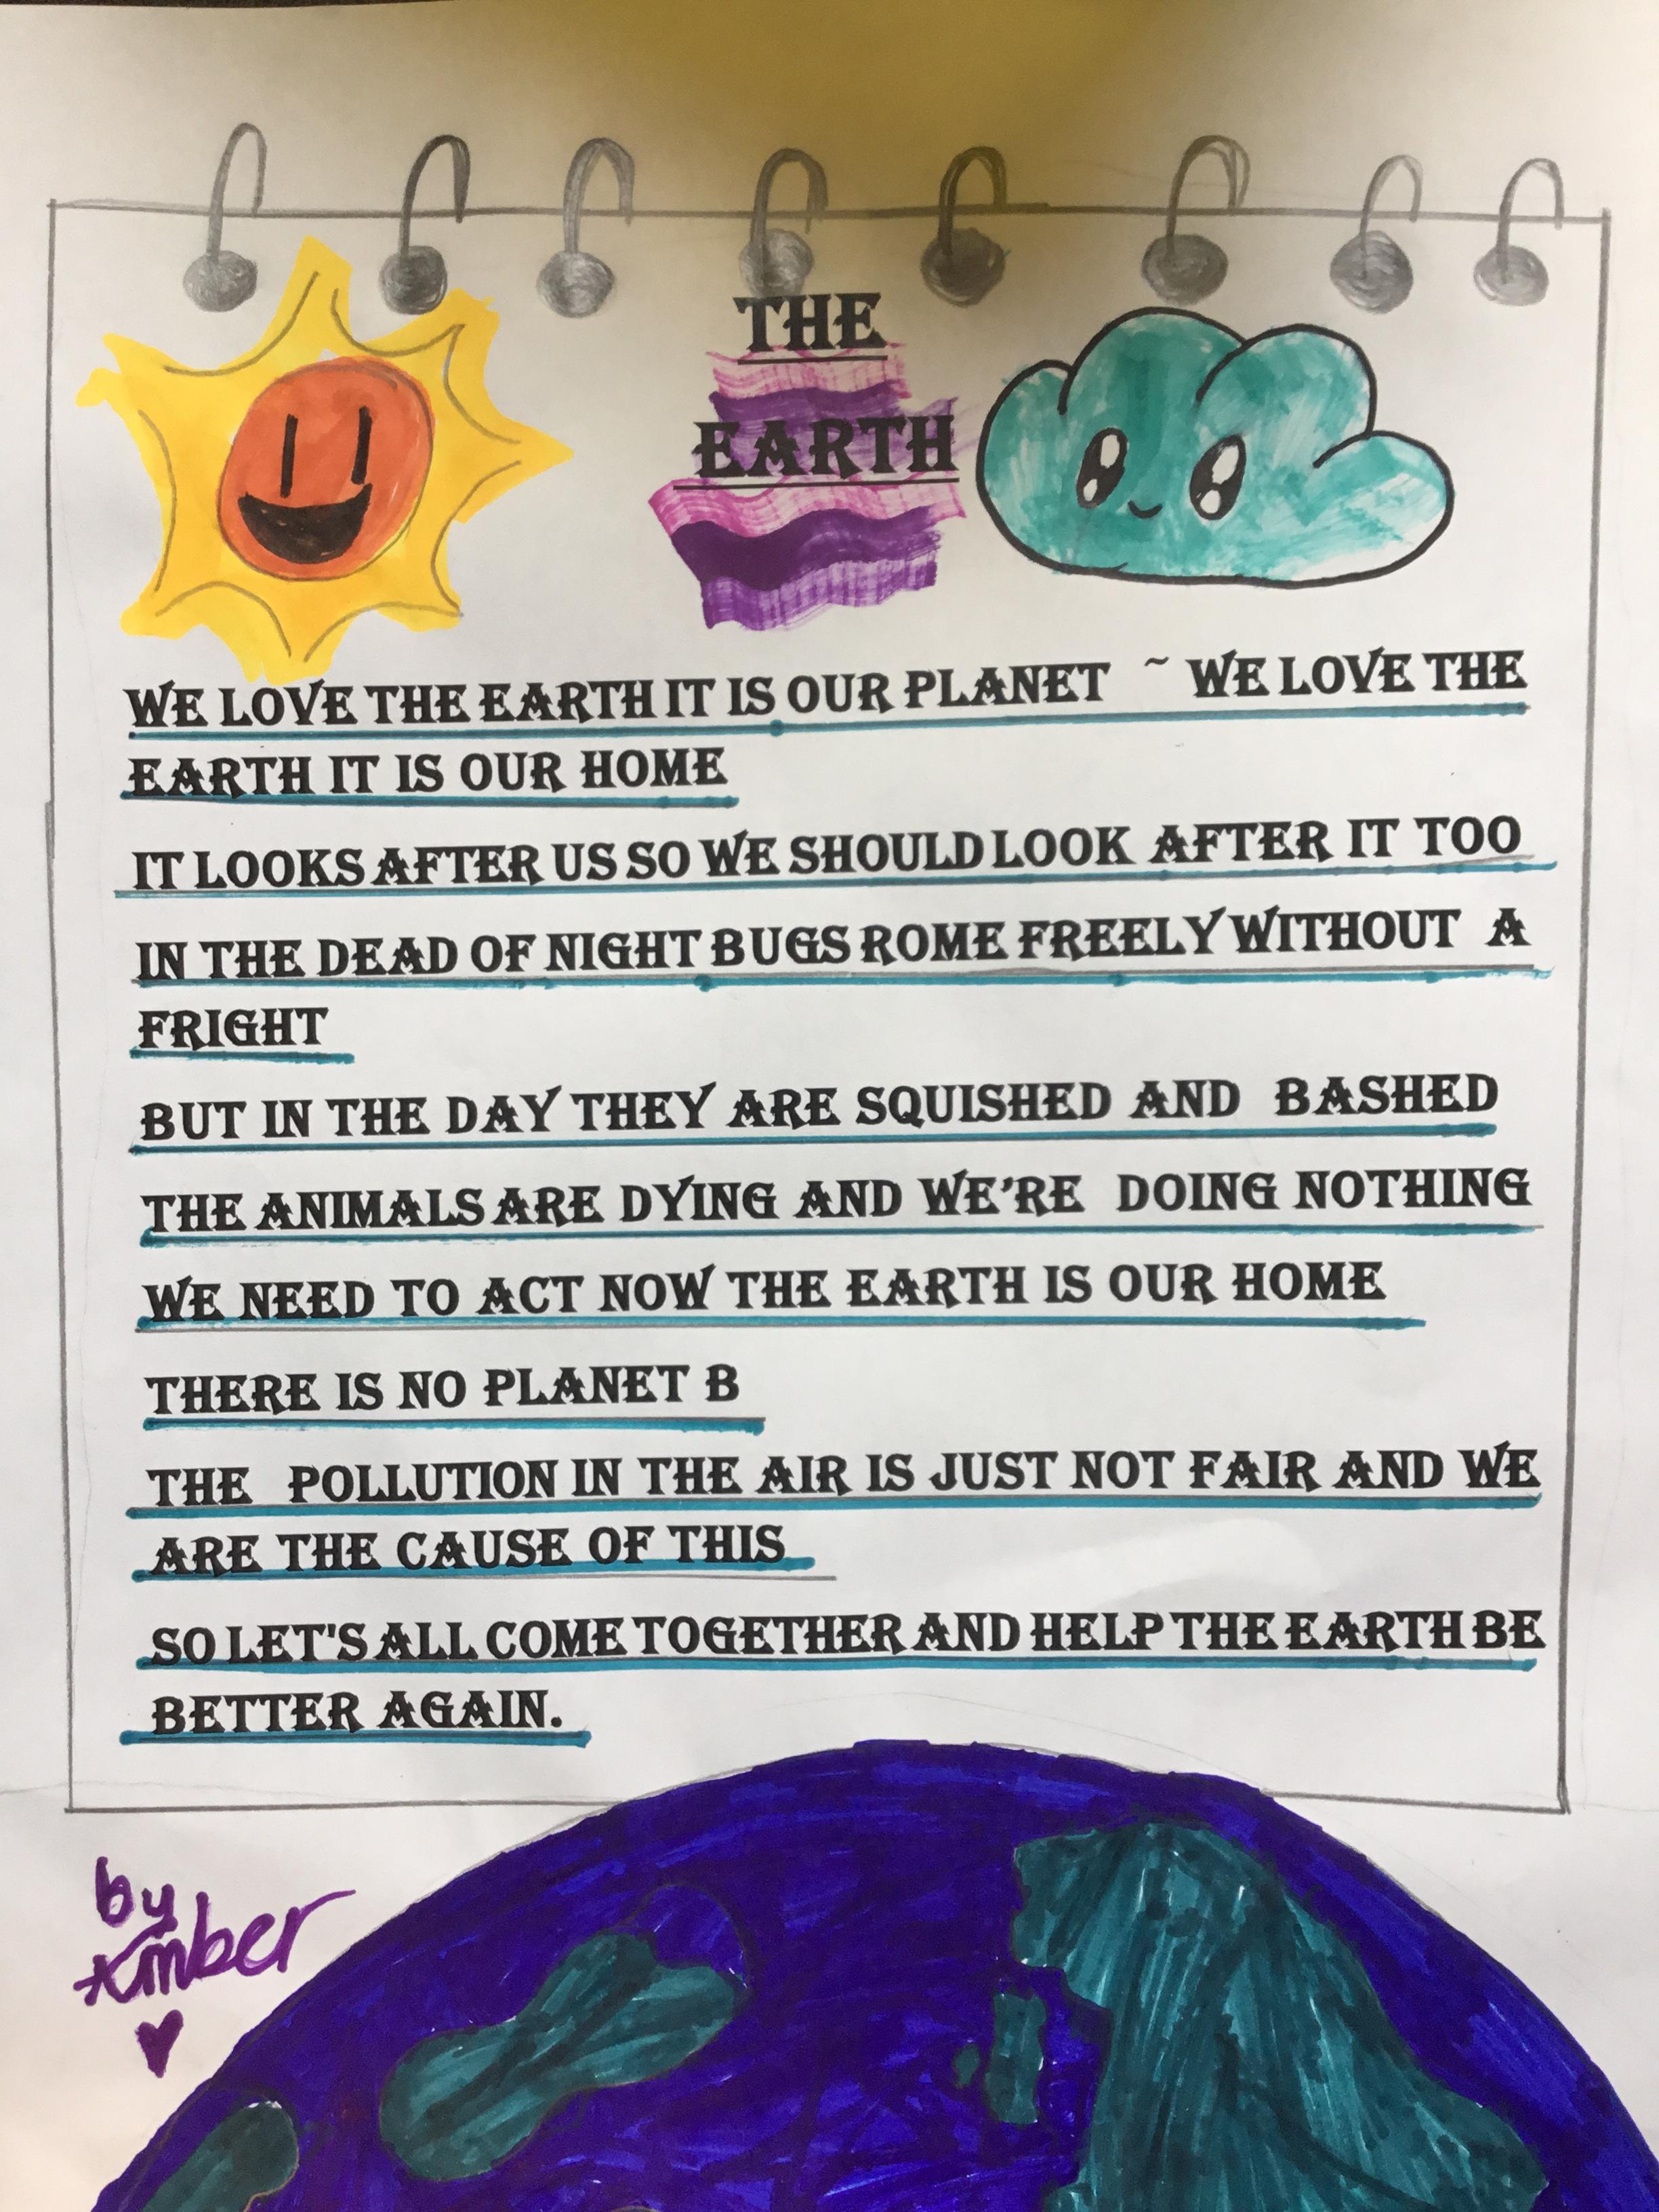 THE
EARTH
WE LOVE THE EARTH IT IS OUR PLANET ~ WE LOVE THE
EARTH IT IS OUR HOME
IT LOOKS AFTER US SO WE SHOULD LOOK AFTER IT TOO
IN THE DEAD OF NIGHT BUGS ROME FREELY WITHOUT A
FRIGHT
BUT IN THE DAY THEY ARE SQUISHED AND BASHED
THE ANIMALS ARE DYING AND WE'RE DOING NOTHING
WE NEED TO ACT NOW THE EARTH IS OUR HOME
THERE IS NO PLANET B
THE POLLUTION IN THE AIR IS JUST NOT FAIR AND WE
ARE THE CAUSE OF THIS
SO LET'S ALL COME TOGETHER AND HELP THE EARTH BE
BETTER AGAIN.
by
Amber